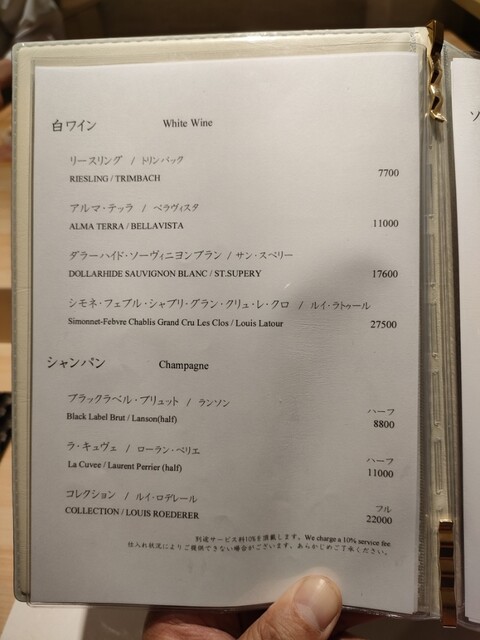 白ワイン White Wine
リースリング / トリンバック
RIESLING / TRIMBACH 7700
アルマ・テッラ / ベラヴィスタ
ALMA TERRA / BELLAVISTA 11000
ダラーハイド・ソーヴィニヨンブラン / サン・スペリー
DOLLARHIDE SAUVIGNON BLANC / ST.SUPERY 17600
シモネ・フェブル・シャブリ・グラン・クリュ・レ・クロ / ルイ・ラトゥール
Simonnet-Febvre Chablis Grand Cru Les Clos / Louis Latour 27500
シャンパン Champagne
ブラックラベル・ブリュット / ランソン ハーフ
Black Label Brut / Lanson(half) 8800
ラ・キュヴェ / ローラン・ペリエ ハーフ
La Cuvee / Laurent Perrier (half) 11000
コレクション / ルイ・ロデレール フル
COLLECTION / LOUIS ROEDERER 22000
別途サービス料10%を頂戴します。We charge a 10% service fee
仕入れ状況によりご提供できない場合がございます。あらかじめご了承ください。
ソ